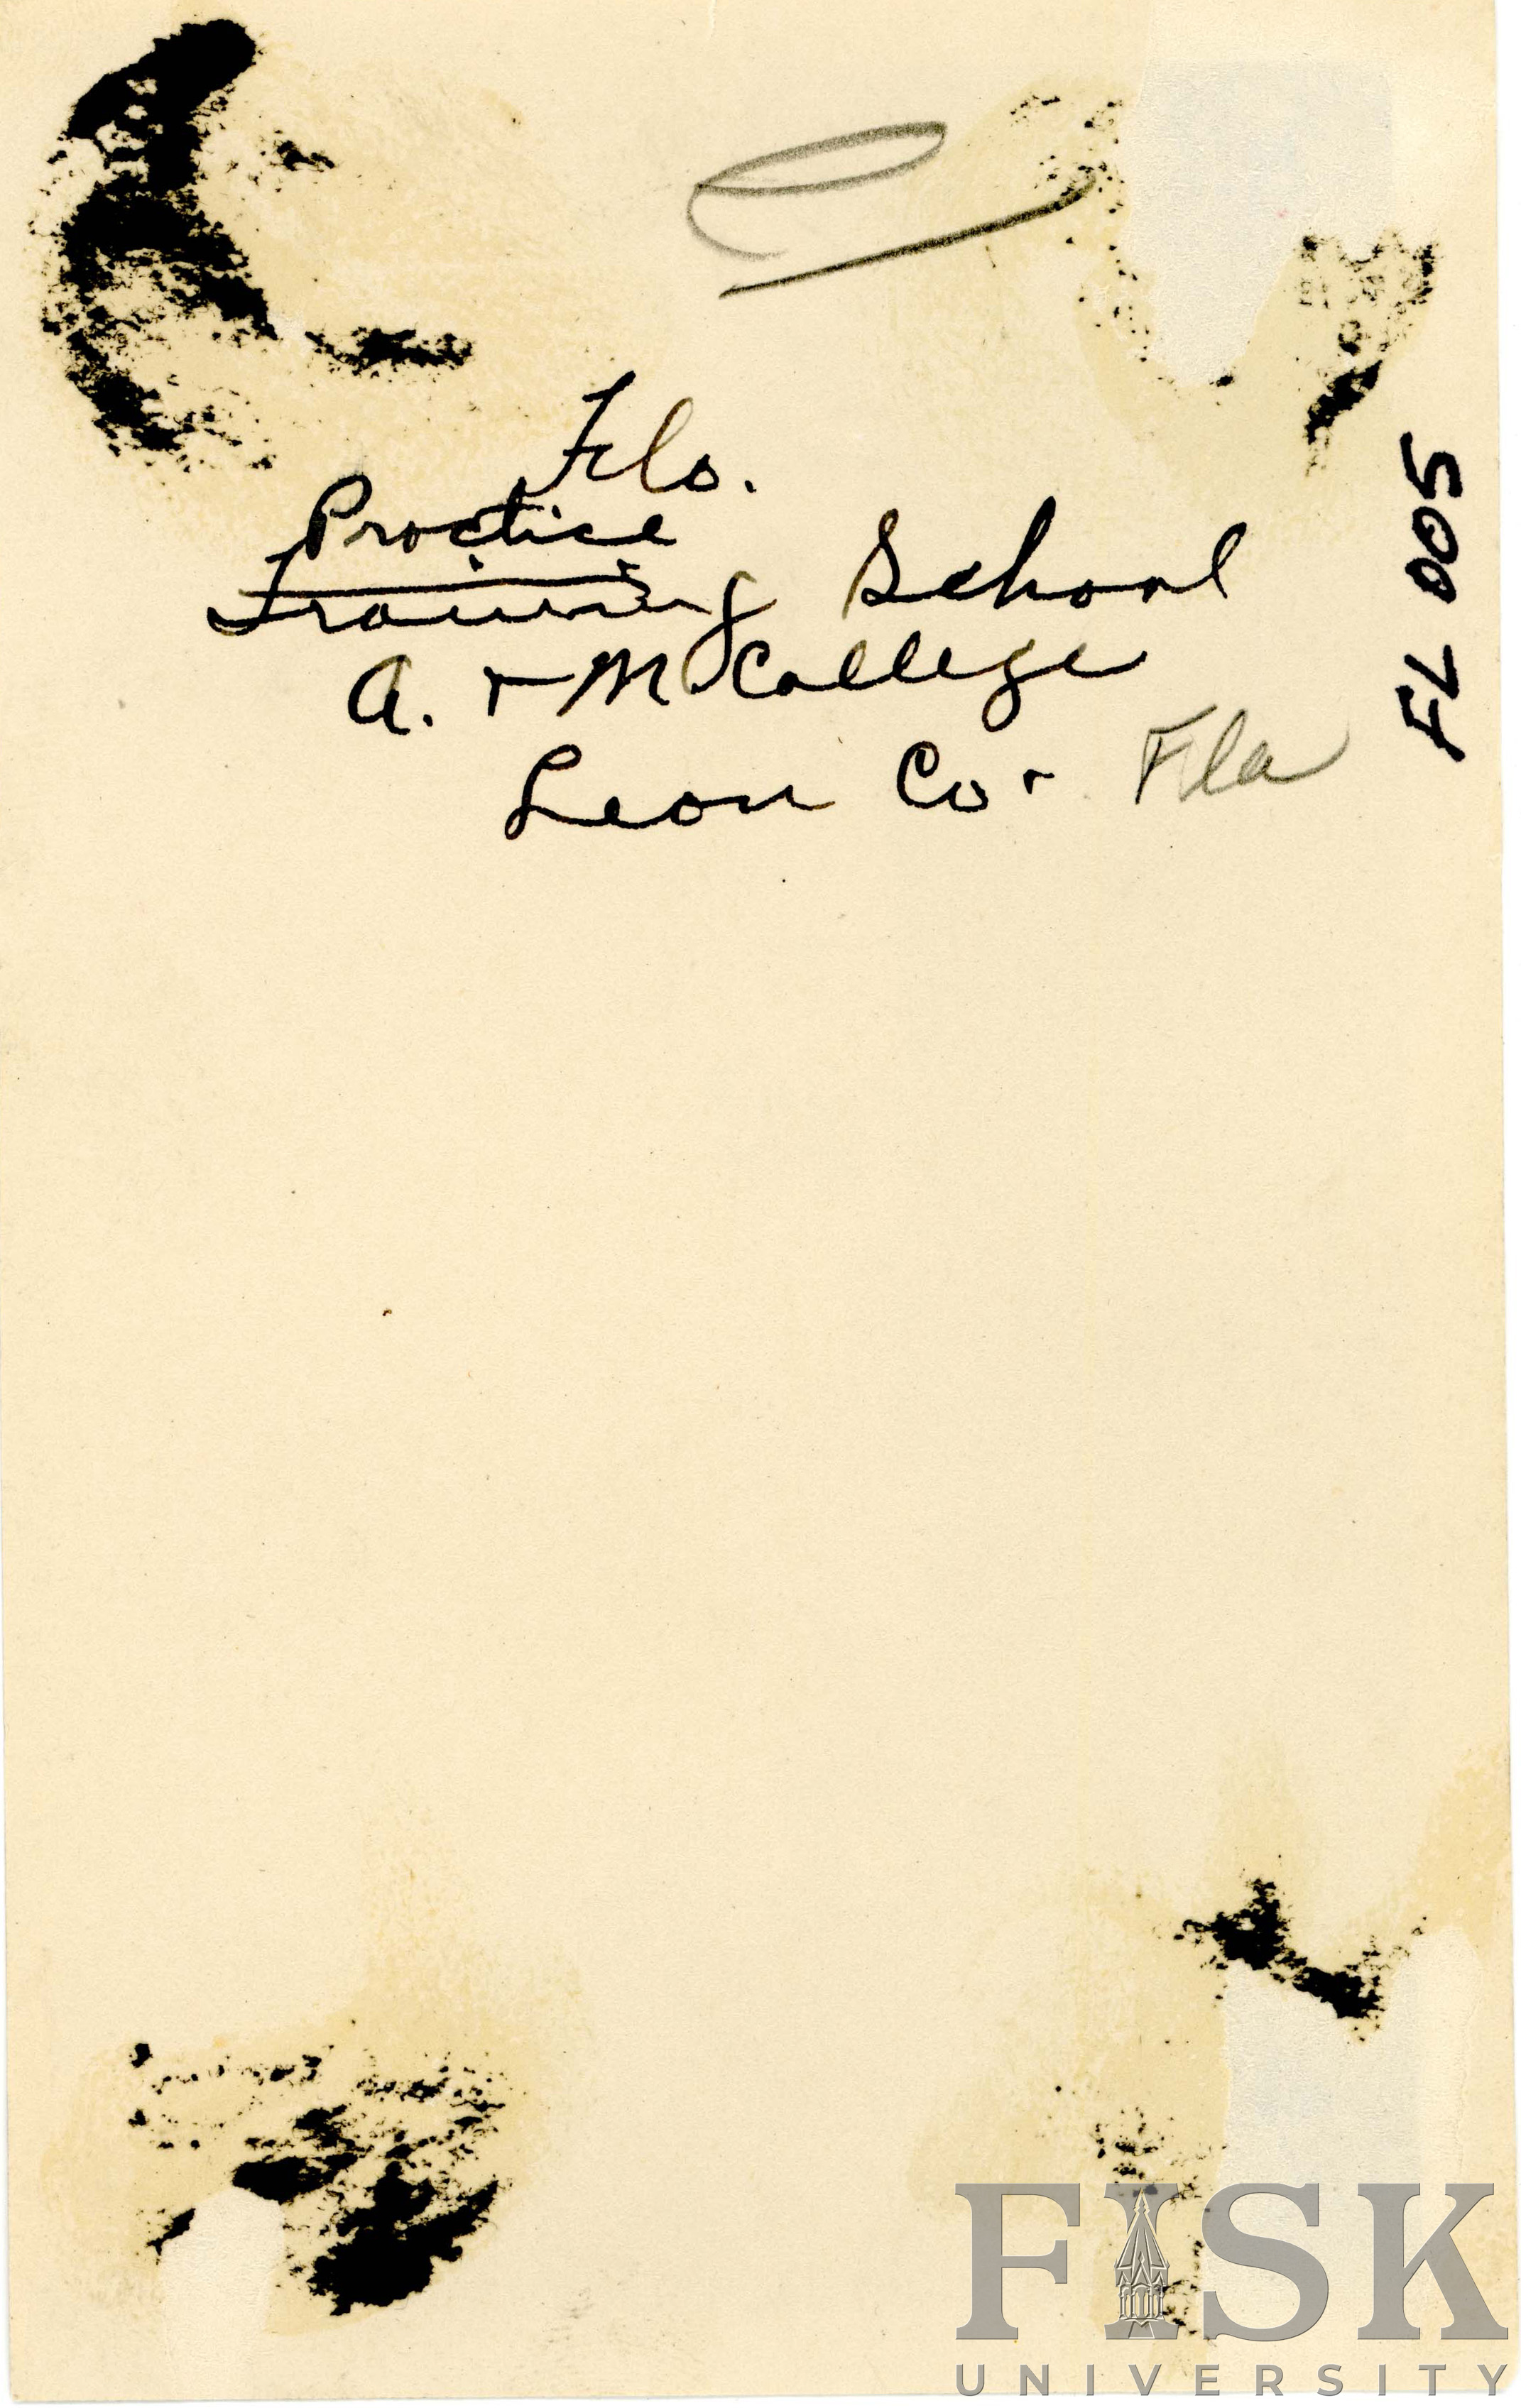 Fla.
Practice
Training School
A. + M. College
Leon Co. Fla
FL 005
FISK
UNIVERSITY